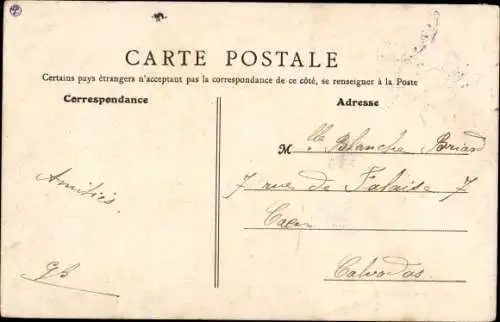 CARTE POSTALE
Certains pays étrangers n'acceptant pas la correspondance de ce côté, se renseigner à la Poste
Correspondance
Adresse
Mlle Blanche Briard
7 rue de Falaise 7
Caen
Calvados.
Amitiés.
GB